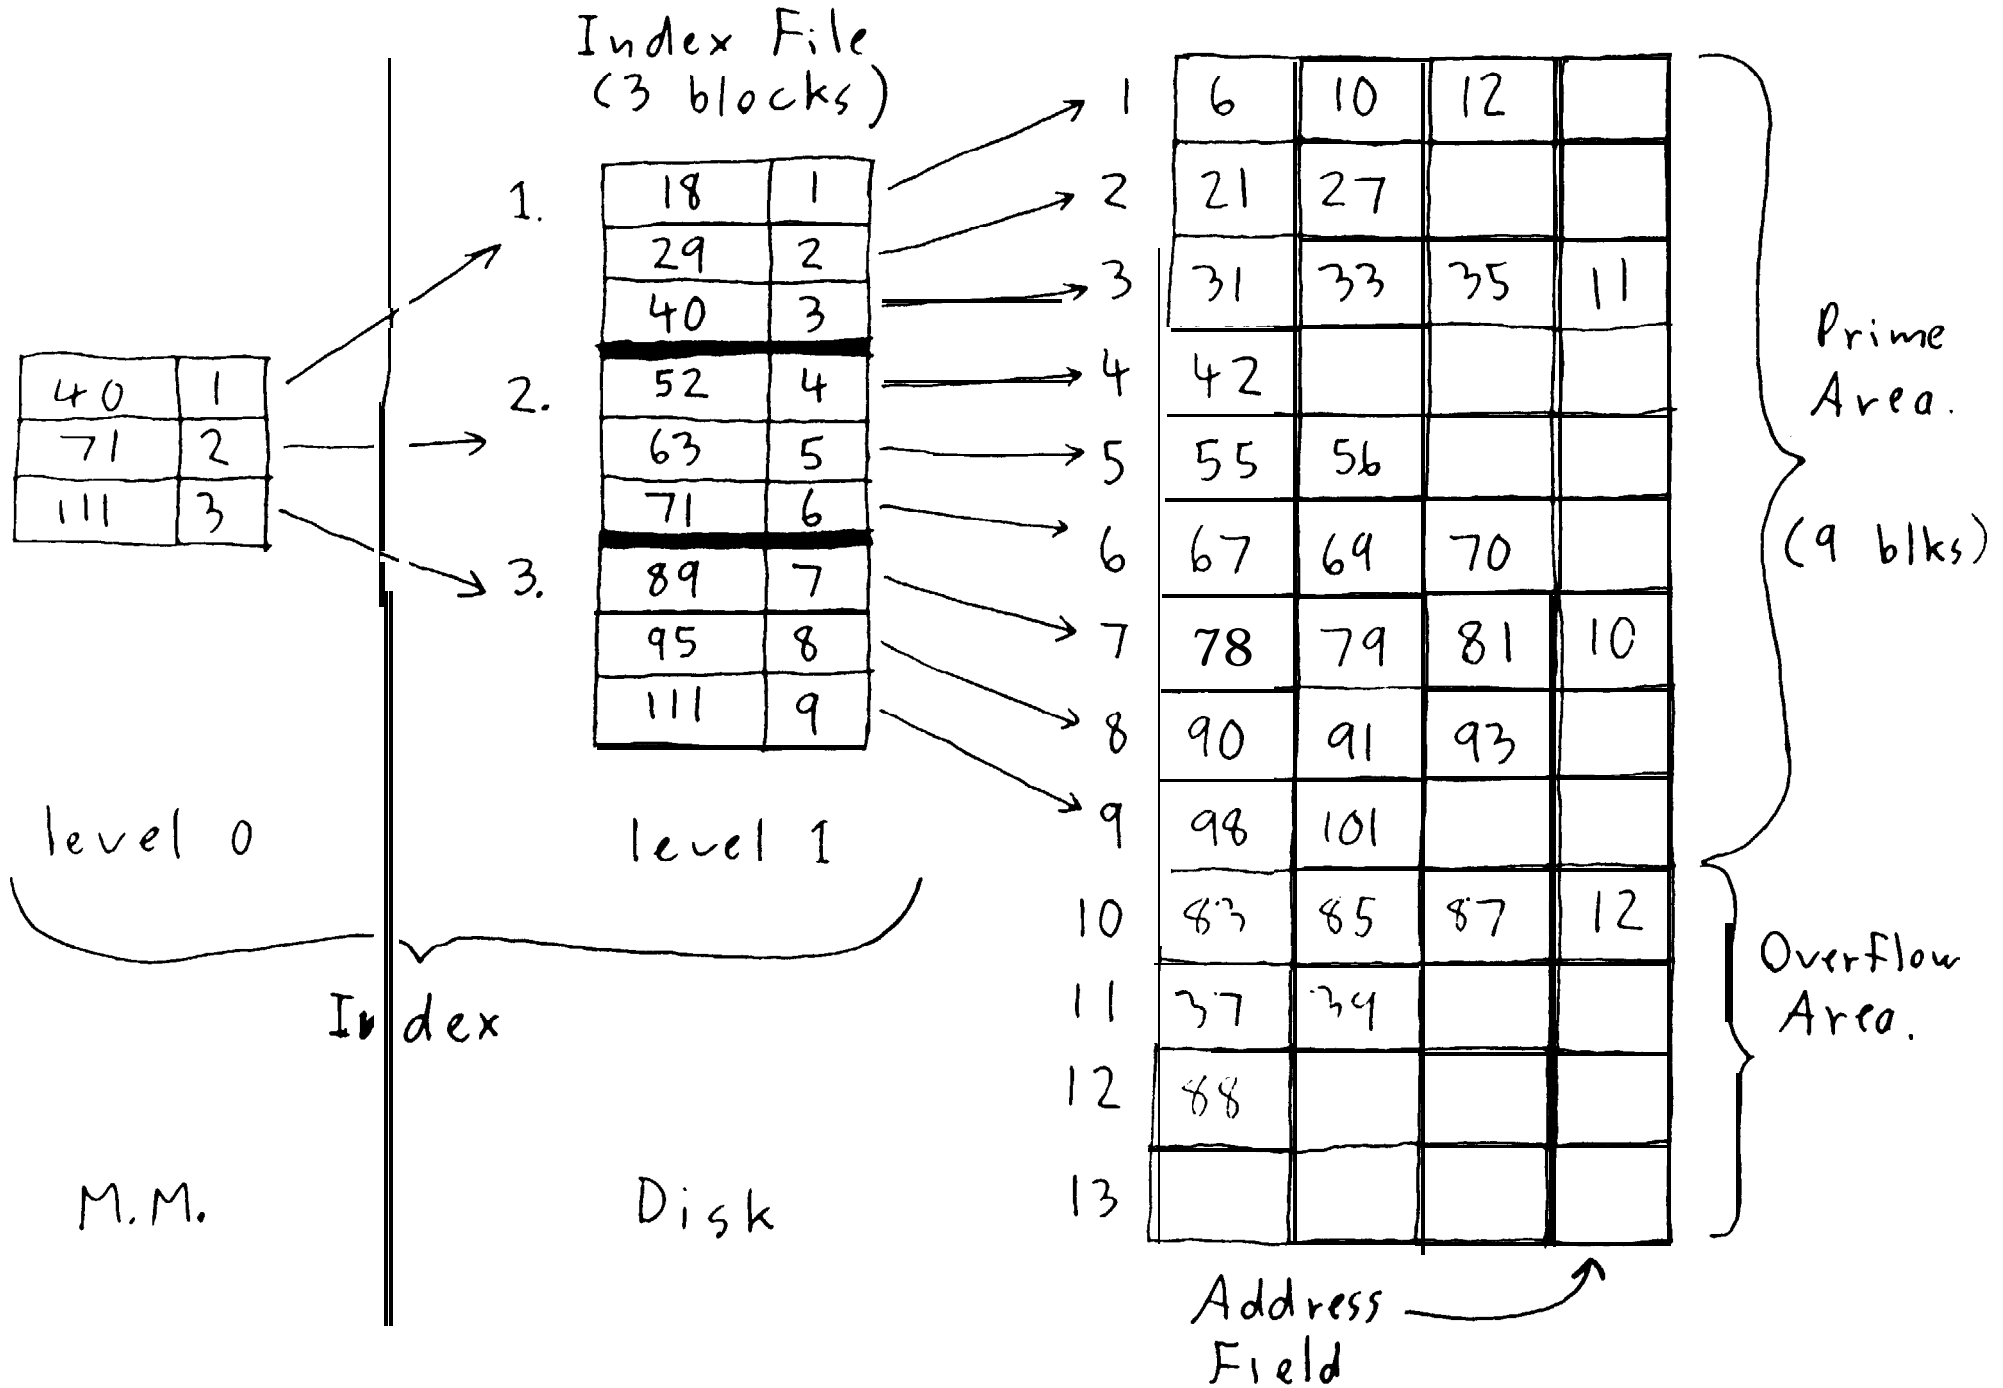 Index File
(3 blocks)
1.
18 1
29 2
40 3
2.
52 4
63 5
71 6
3.
89 7
95 8
111 9
40 1
71 2
111 3
level 0
level 1
Index
M.M.
Disk
1 6 10 12
2 21 27
3 31 33 35 11
4 42
5 55 56
6 67 69 70
7 78 79 81 10
8 90 91 93
9 98 101
10 83 85 87 12
11 37 39
12 88
13
Prime
Area.
(9 blks)
Overflow
Area.
Address
Field